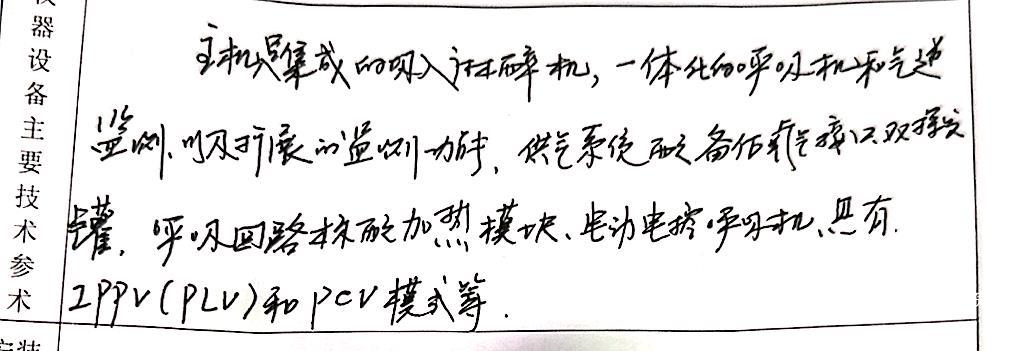 仪器设备主要技术参术
主机是集成的吸入麻醉机，一体化的呼吸机和气道
监测、以及扩展的监测功能，供气系统配备低氧气接口双挥发
罐，呼吸回路标配加热模块、电动电控呼吸机、具有
IPPV（PLV）和PCV模式等．
安装